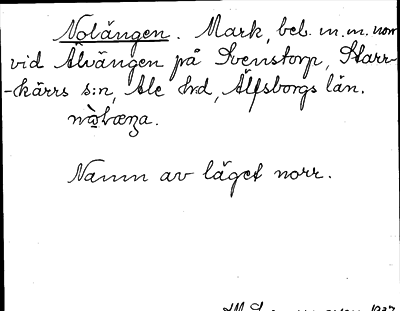 Nolängen. Mark, beb. m.m. norr
vid Älvängen på Svenstorp, Starr-
-kärrs s:n, Ale hd, Älfsborgs län.
Namn av läget norr.